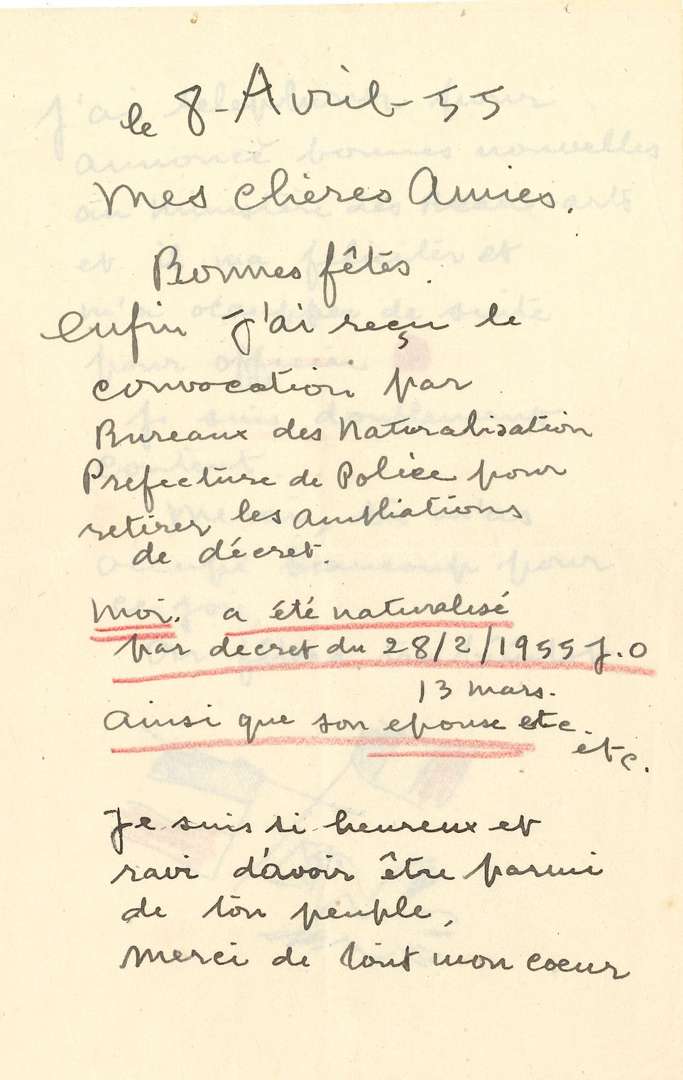 le 8-Avril-55
Mes chères Amies.
Bonnes fêtes.
Enfin J'ai reçu le
convocation par
Bureaux des Naturalisation
Prefecture de Police pour
retirer les ampliations
de décret.
Moi. a été naturalisé
par decret du 28/2/1955 J.O
13 mars.
Ainsi que son epouse etc.
etc.
Je suis si heureux et
ravi d'avoir être parmi
de ton peuple,
Merci de tout mon coeur